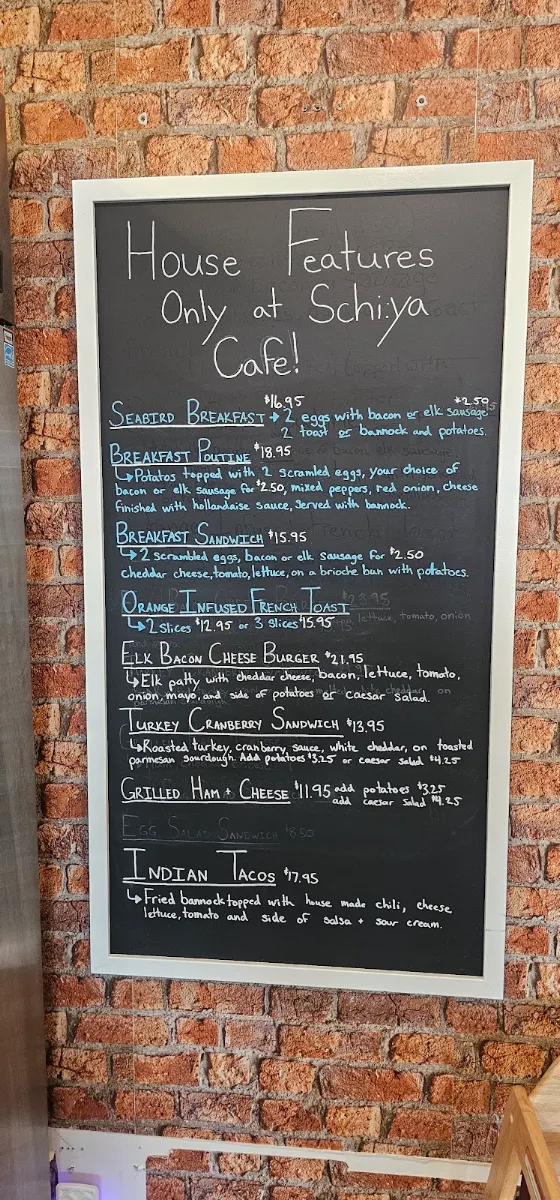 House Features
Only at Schi:ya
Cafe!
SEABIRD BREAKFAST $16.95 → 2 eggs with bacon or elk sausage $2.50
2 toast or bannock and potatoes.
BREAKFAST POUTINE $18.95
↳ Potatos topped with 2 scramled eggs, your choice of
bacon or elk sausage for $2.50, mixed peppers, red onion, cheese
finished with hollandaise sauce, served with bannock.
BREAKFAST SANDWICH $15.95
↳ 2 scrambled eggs, bacon or elk sausage for $2.50
cheddar cheese, tomato, lettuce, on a brioche bun with potatoes.
ORANGE INFUSED FRENCH TOAST
↳ 2 slices $12.95 or 3 slices $15.95
ELK BACON CHEESE BURGER $21.95
↳ Elk patty with cheddar cheese, bacon, lettuce, tomato,
onion, mayo, and side of potatoes or caesar salad.
TURKEY CRANBERRY SANDWICH $13.95
↳ Roasted turkey, cranberry, sauce, white cheddar, on toasted
parmesan sourdough. Add potatoes $3.25 or caesar salad $4.25
GRILLED HAM + CHEESE $11.95 add potatoes $3.25
add caesar salad $4.25
EGG SALAD SANDWICH $8.50
INDIAN TACOS $17.95
↳ Fried bannock topped with house made chili, cheese
lettuce, tomato and side of salsa + sour cream.